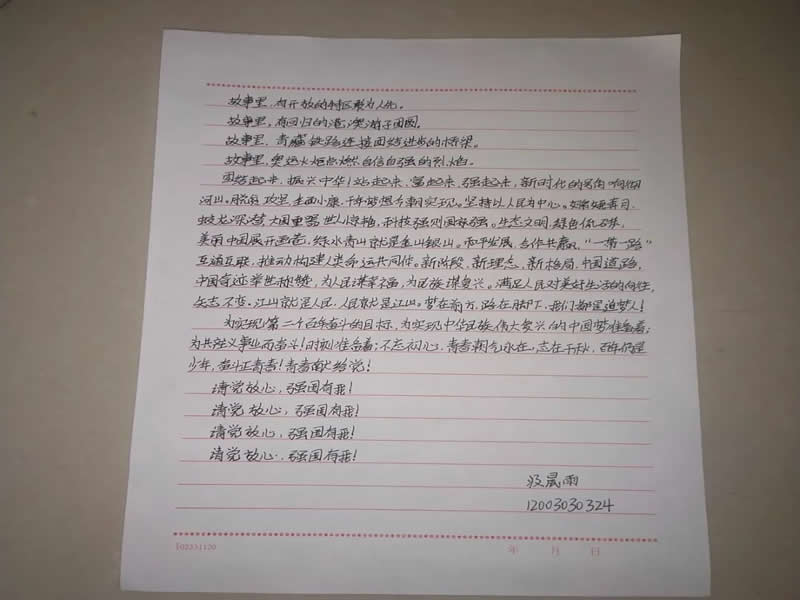 故事里，有开放的特区敢为人先。
故事里，有回归的港澳游子团圆。
故事里，青藏铁路连接团结进步的桥梁。
故事里，奥运火炬点燃自信自强的烈焰。
团结起来，振兴中华！站起来，富起来，强起来，新时代的号角响彻
河山。脱贫攻坚，全面小康，千年梦想今朝实现。坚持以人民为中心。嫦娥奔月，
蛟龙深潜，大国重器世人惊艳，科技强则国家强。生态文明，绿色低碳，
美丽中国展开画卷，绿水青山就是金山银山。和平发展，合作共赢，“一带一路”
互通互联，推动构建人类命运共同体。新阶段，新理念，新格局，中国道路，
中国奇迹举世称赞，为人民谋幸福，为民族谋复兴。满足人民对美好生活的向往，
矢志不变，江山就是人民，人民就是江山。梦在前方，路在脚下，我们都是追梦人！
为实现第二个百年奋斗的目标，为实现中华民族伟大复兴的中国梦准备着；
为共产主义事业而奋斗！时刻准备着；不忘初心，青春朝气永在，志在千秋，百年仍是
少年，奋斗正青春！青春献给党！
请党放心，强国有我！
请党放心，强国有我！
请党放心，强国有我！
请党放心，强国有我！
晟雨
12003030324
年 月 日